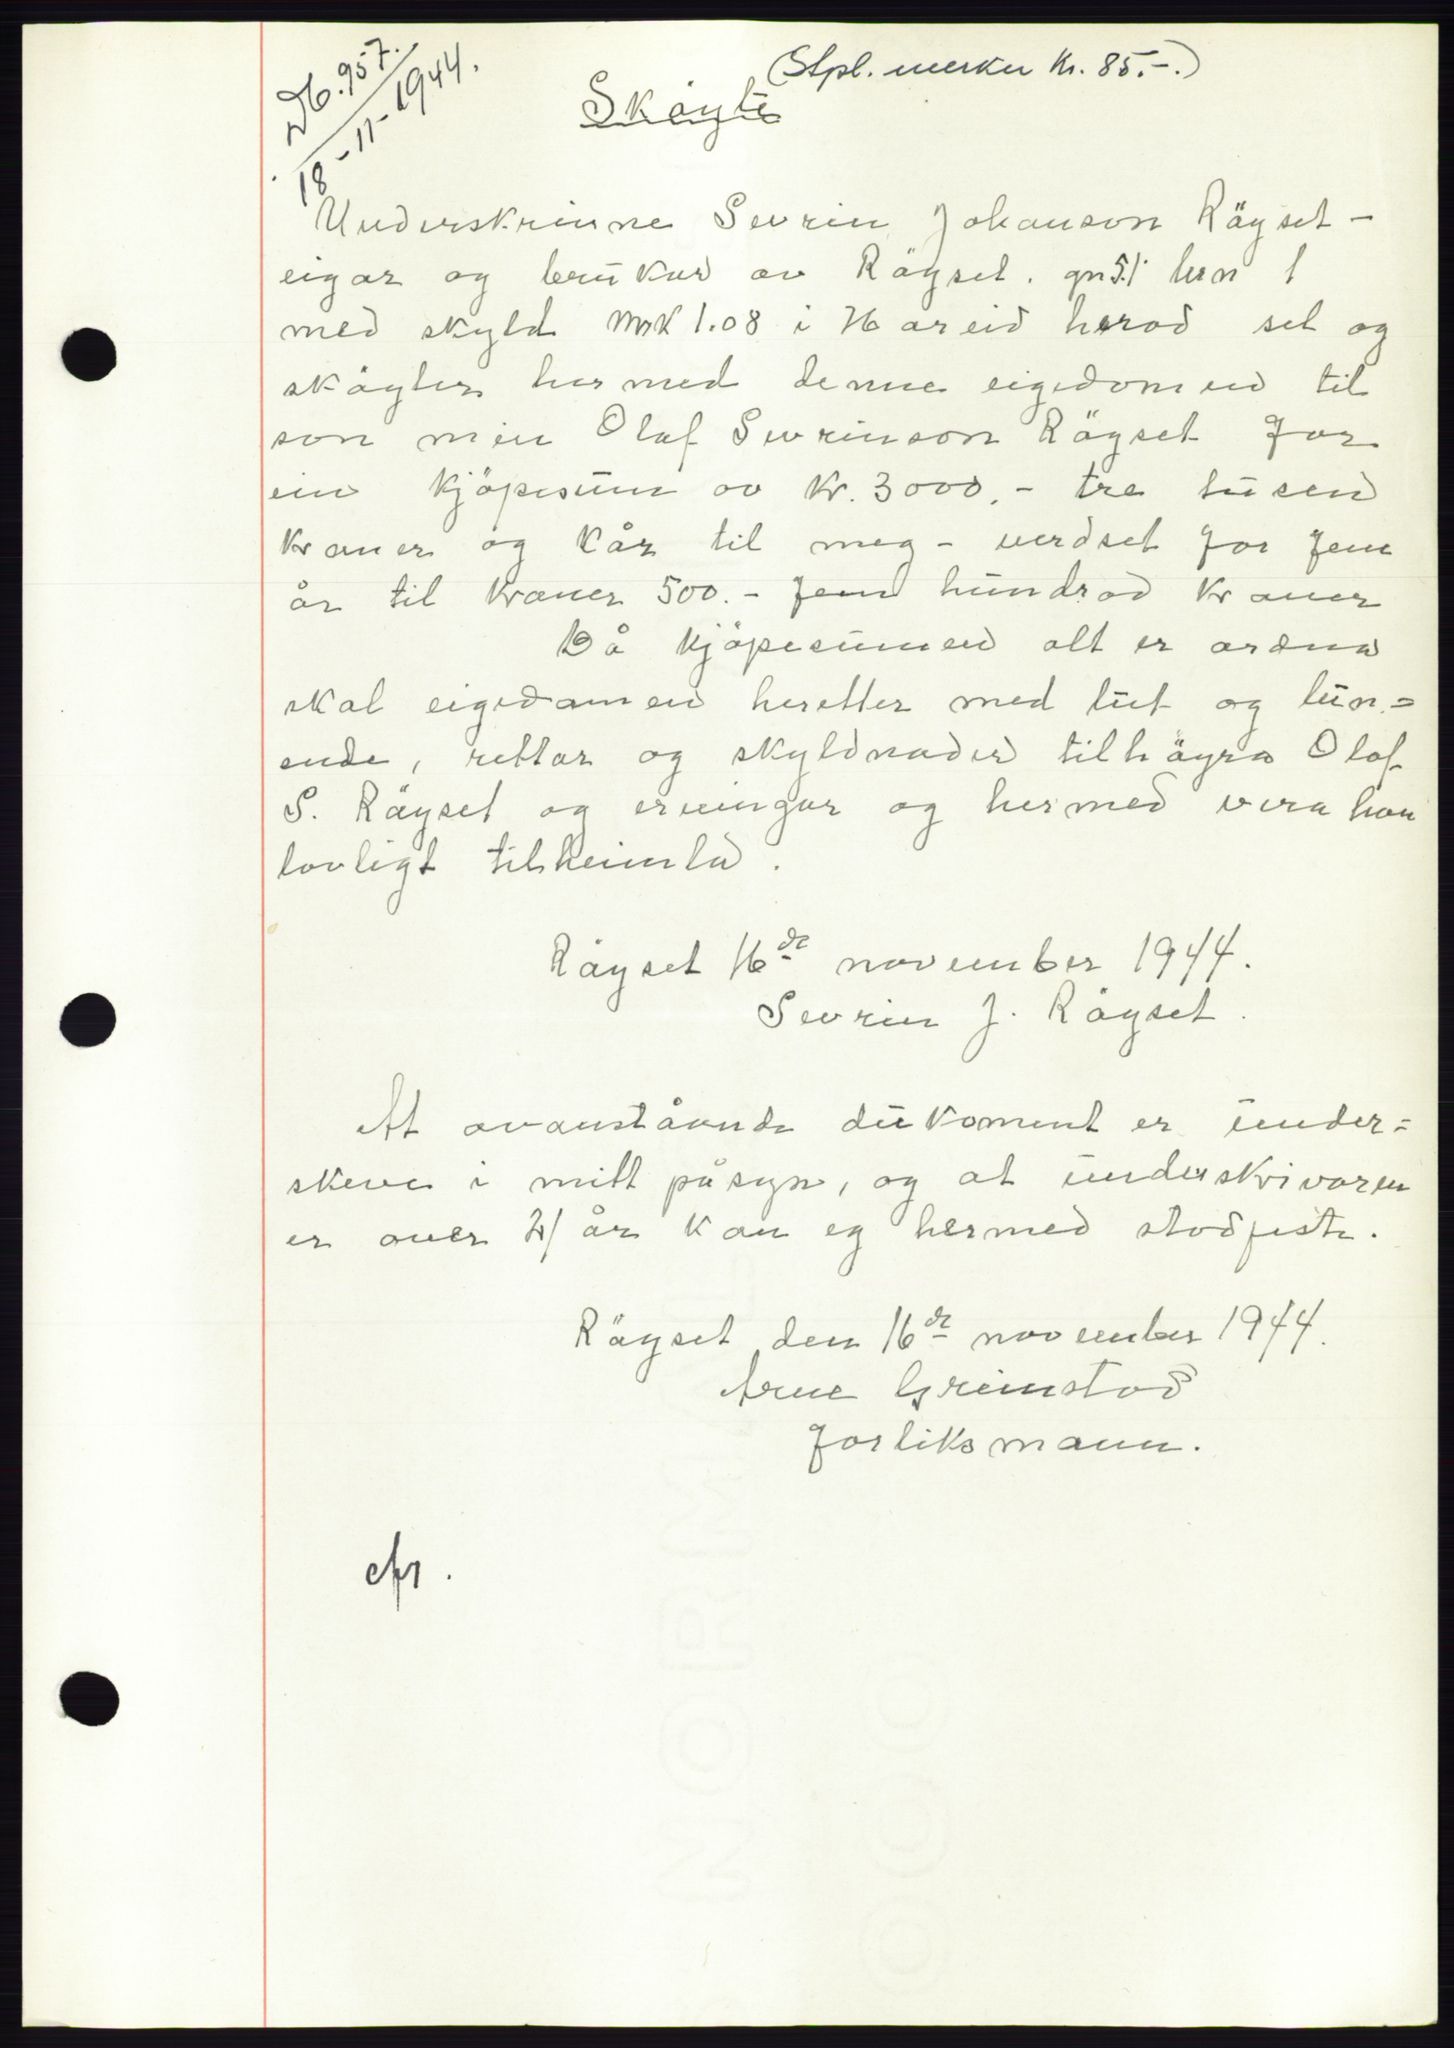 Db. 957.
18-11-1944.
(Stpl. merker Kr. 85.-.)
Skøyte
Underskrivne Sevrin Johanson Røyset -
eigar og brukar av Røyset. gn 51 brn 1
med skyld mrk 1.08 i Hareid herad sel og
skøyter hermed denne eigedomen til
son min Olaf Sevrinson Røyset for
ein kjøpesum av Kr. 3000.- tre tusen
kroner og kår til meg - verdset for fem
år til kroner 500.- fem hundrad kroner
Då kjøpesumen alt er ordna
skal eigedomen heretter med lut og lun-
ende, rettar og skyldnader tilhøyra Olaf
S. Røyset og ervingar og hermed vera han
lovligt tilheimla.
Røyset 16de november 1944.
Sevrin J. Røyset.
At ovanståande dukoment er under-
skeve i mitt påsyn, og at underskrivaren
er over 21 år kan eg hermed stadfeste.
Røyset den 16de november 1944.
Arne Grimstad
forliksmann.